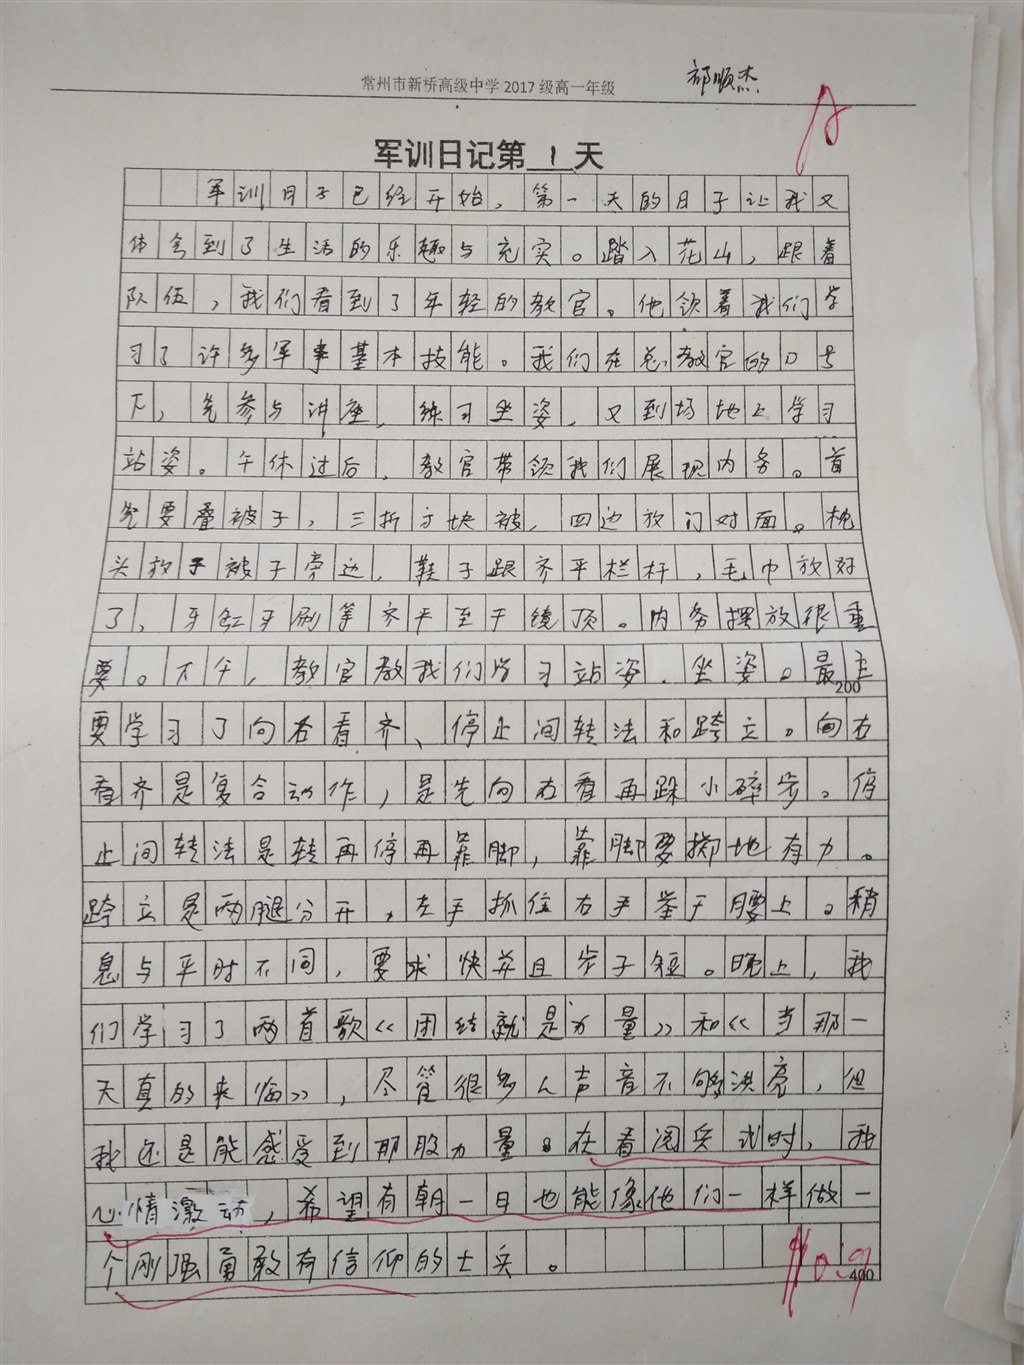 常州市新桥高级中学 2017 级高一年级
祁顺杰
A
军训日记第 1 天
军训日子已经开始，第一天的日子让我又
体会到了生活的乐趣与充实。踏入花山，跟着
队伍，我们看到了年轻的教官。他领着我们学
习了许多军事基本技能。我们在总教官的口号
下，先参与讲座，练习坐姿，又到场地上学习
站姿。午休过后，教官带领我们展现内务。首
先要叠被子，三折方块被，四边放门对面。枕
头放于被子旁边，鞋子跟齐平栏杆，毛巾放好
了，牙缸牙刷等齐平至于镜顶。内务摆放很重
要。下午，教官教我们学习站姿、坐姿。最主
200
要学习了向右看齐、停止间转法和跨立。向右
看齐是复合动作，是先向右看再跺小碎步。停
止间转法是转再停再靠脚，靠脚要掷地有力。
跨立是两腿分开，左手抓住右手举于腰上。稍
息与平时不同，要求快并且步子短。晚上，我
们学习了两首歌《团结就是力量》和《当那一
天真的来临》，尽管很多人声音不够洪亮，但
我还是能感受到那股力量。在看阅兵式时，我
心情激动，希望有朝一日也能像他们一样做一
个刚强勇敢有信仰的士兵。
400